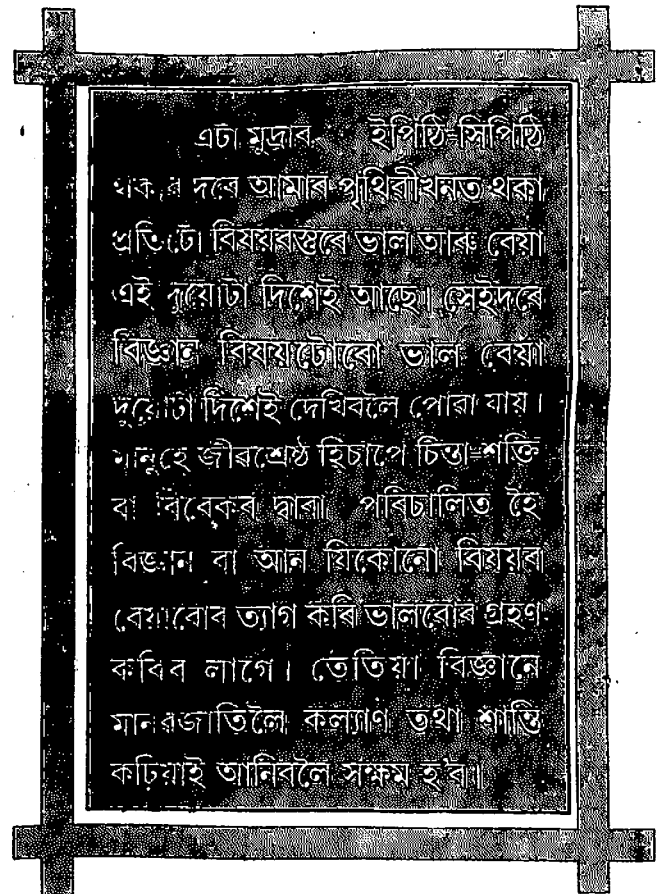 এটা মুদ্ৰাৰ ইপিঠি-সিপিঠি
থকাৰ দৰে আমাৰ পৃথিৱীখনত থকা
প্ৰতিটো বিষয়বস্তুৰে ভাল আৰু বেয়া
এই দুয়োটা দিশেই আছে। সেইদৰে
বিজ্ঞান বিষয়টোৰো ভাল বেয়া
দুয়োটা দিশেই দেখিবলৈ পোৱা যায়।
মানুহে জীৱশ্ৰেষ্ঠ হিচাপে চিন্তা-শক্তি
বা বিবেকৰ দ্বাৰা পৰিচালিত হৈ
বিজ্ঞান বা আন যিকোনো বিষয়ৰ
বেয়াবোৰ ত্যাগ কৰি ভালবোৰ গ্ৰহণ
কৰিব লাগে। তেতিয়া বিজ্ঞানে
মানৱজাতিলৈ কল্যাণ তথা শান্তি
কঢ়িয়াই আনিবলৈ সক্ষম হ'ব।